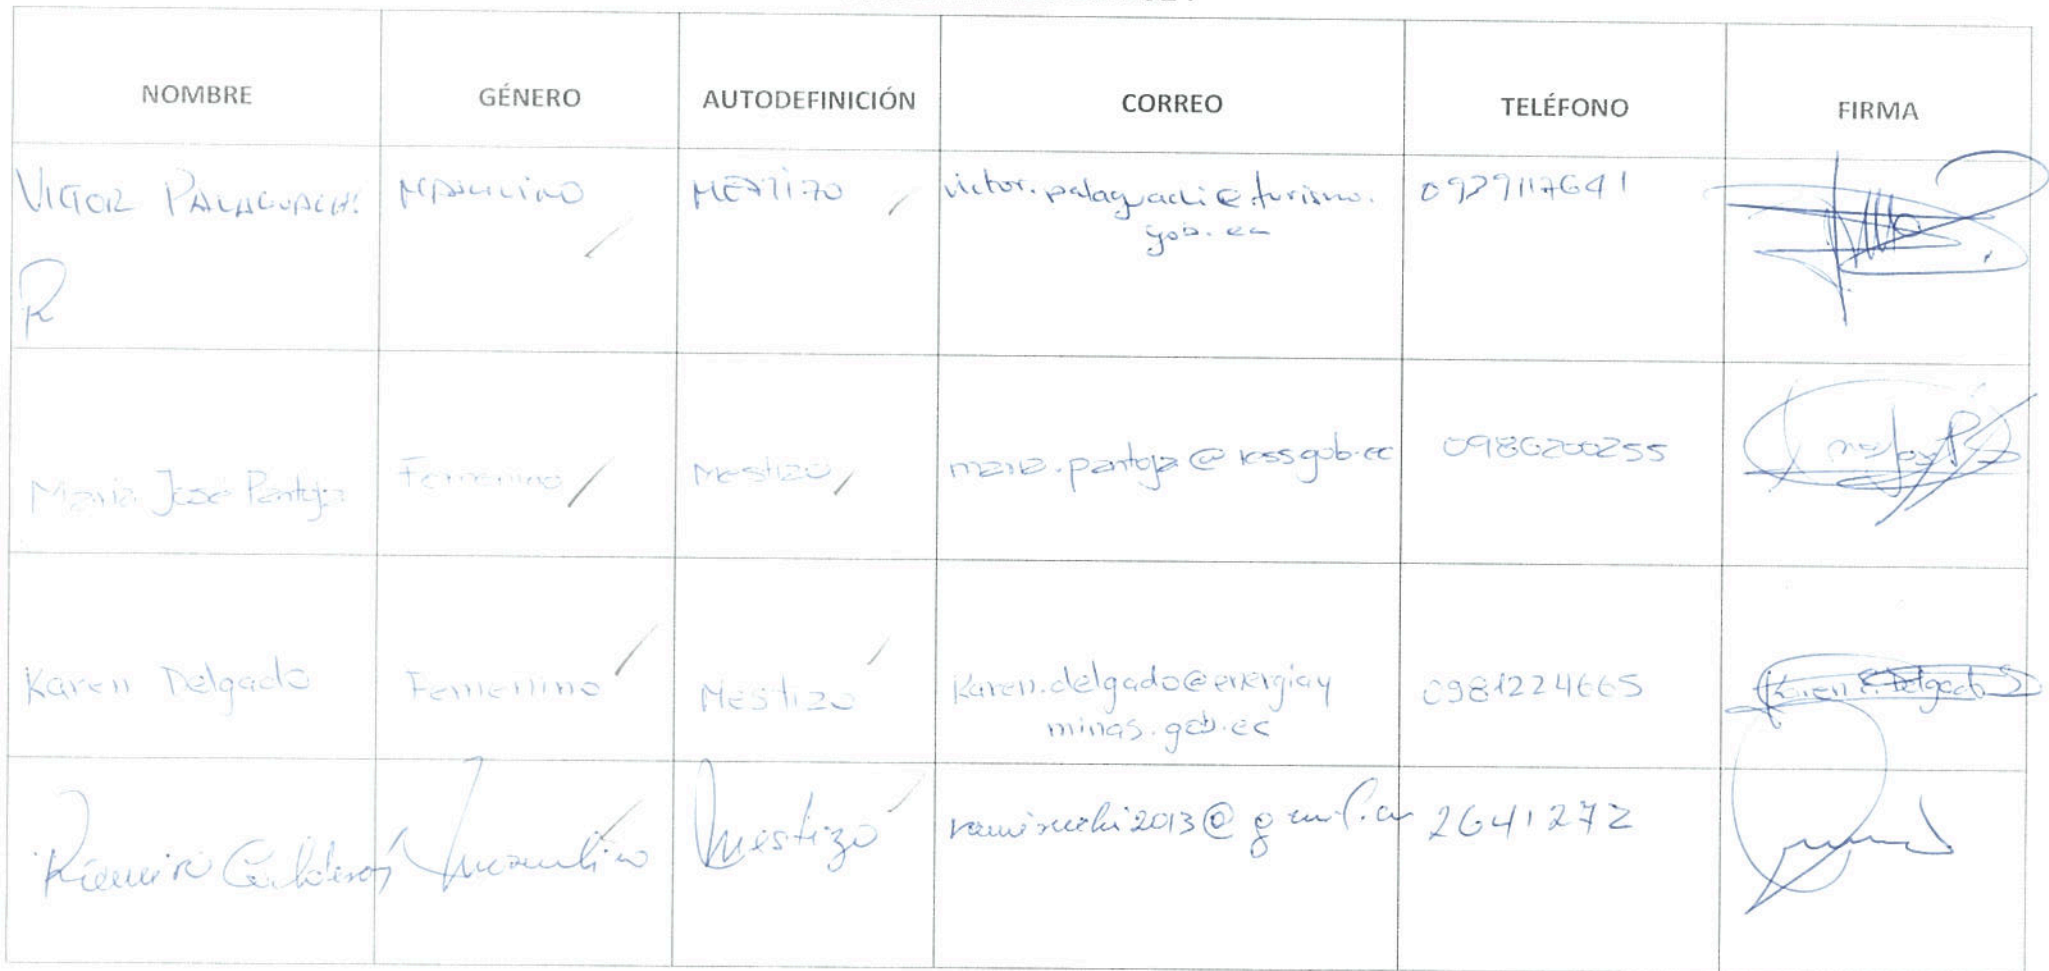 NOMBRE GÉNERO AUTODEFINICIÓN CORREO TELÉFONO FIRMA
VICTOR PALAGUACHI MASCULINO MESTIZO victor.palaguachi@turismo. 0939117641
gob.ec
R
María José Pantoja Femenino Mestizo maria.pantoja@iess.gob.ec 0986200255
Karen Delgado Femenino Mestizo Karen.delgado@energiay 0981224665 Karen E. Delgado S.
minas.gob.ec
Ramiro Calderón masculino mestizo 2641272